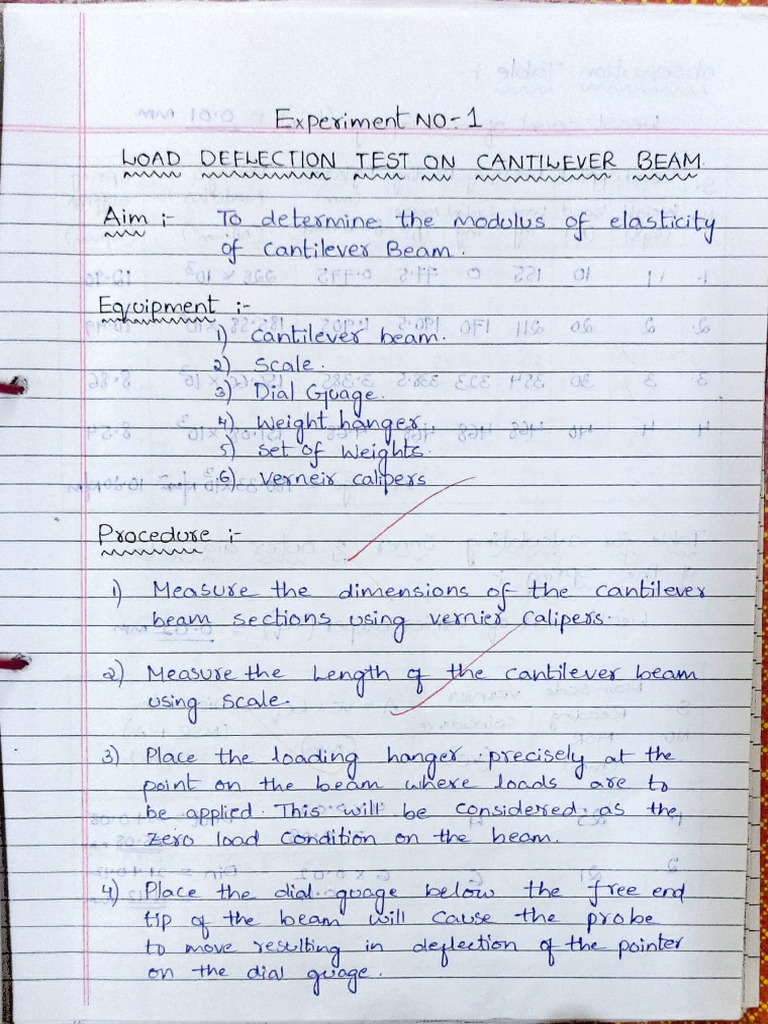 Experiment NO:- 1
LOAD DEFLECTION TEST ON CANTILEVER BEAM.
Aim :- To determine the modulus of elasticity
of cantilever Beam.
Equipment :-
1) cantilever beam.
2) Scale.
3) Dial Guage.
4) Weight hanger
5) set of Weights.
6) Verneir calipers
Procedure :-
1) Measure the dimensions of the cantilever
beam sections using vernier calipers.
2) Measure the Length of the cantilever beam
using scale.
3) Place the loading hanger precisely at the
point on the beam where loads are to
be applied. This will be considered as the
zero load condition on the beam.
4) Place the dial guage below the free end
tip of the beam will cause the probe
to move resulting in deflection of the pointer
on the dial guage.